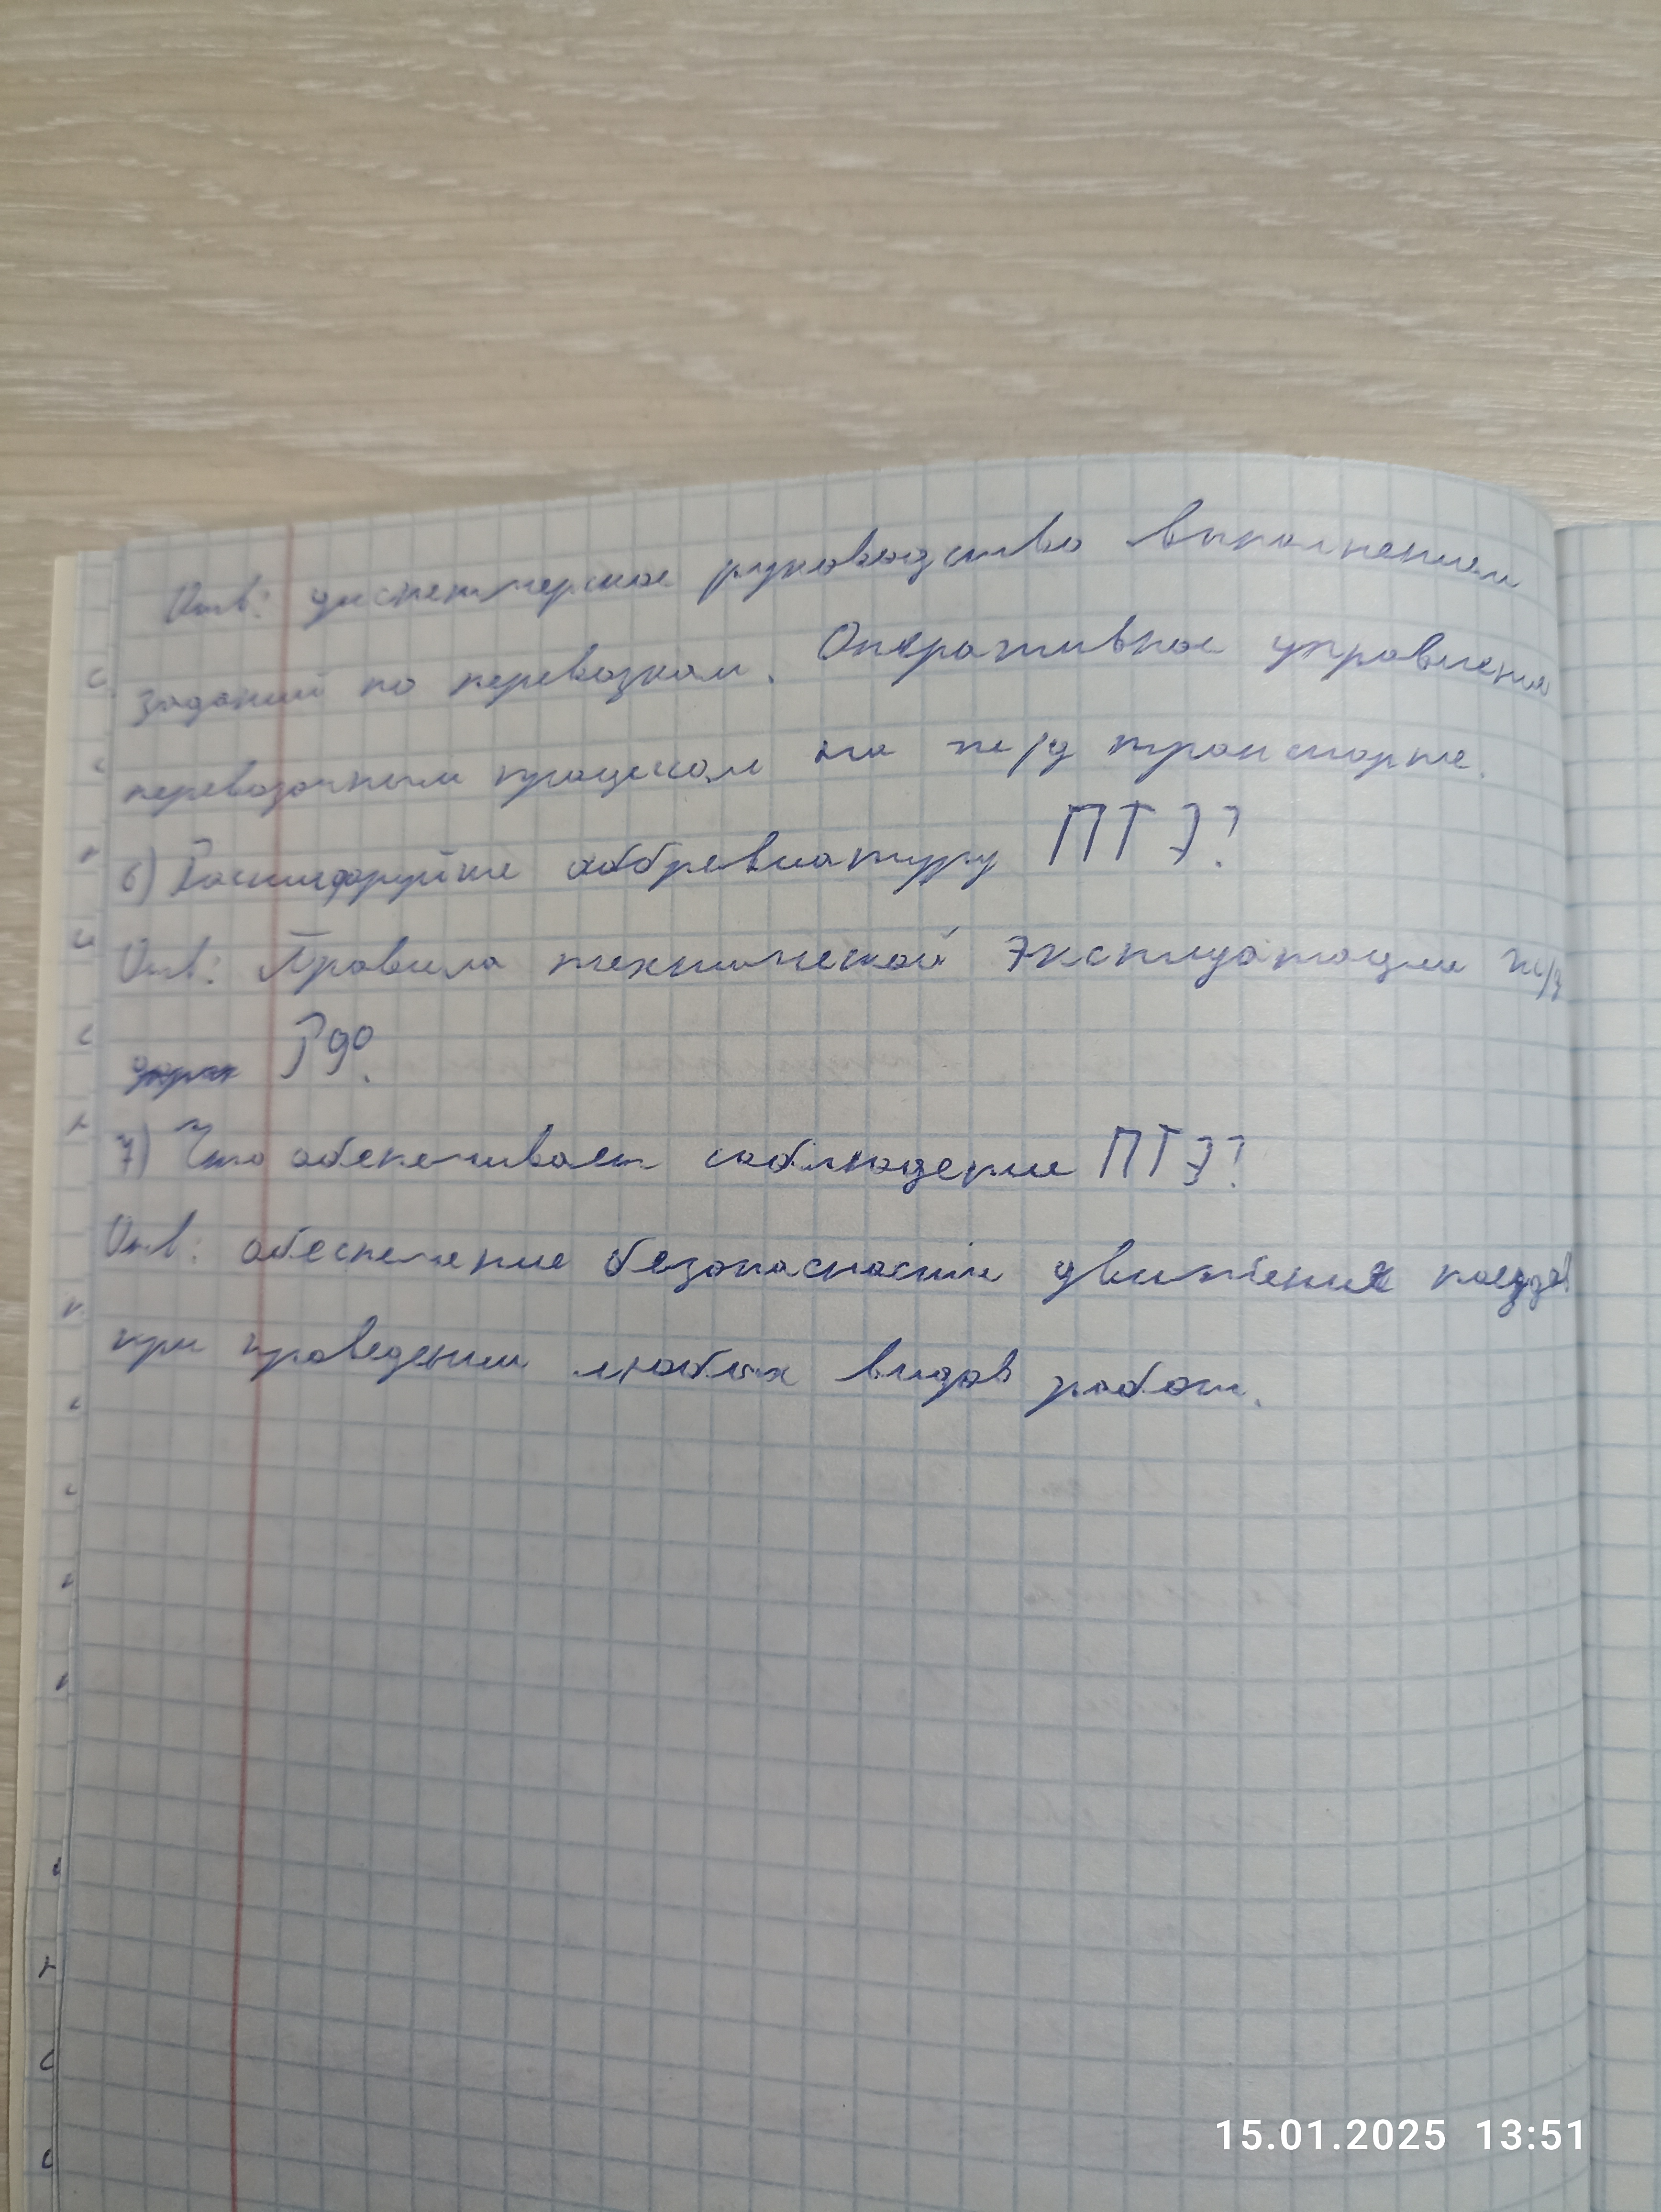 Отв: диспетчерское руководство выполнением
заданий по перевозкам. Оперативное управление
перевозочным процессом на ж/д транспорте.
6) Расшифруйте аббревиатуру ПТЭ?
Отв: Правила технической эксплуатации ж/д
РФ.
7) Что обеспечивает соблюдение ПТЭ?
Отв: обеспечение безопасности движения поездов
при проведении любых видов работ.
15.01.2025 13:51